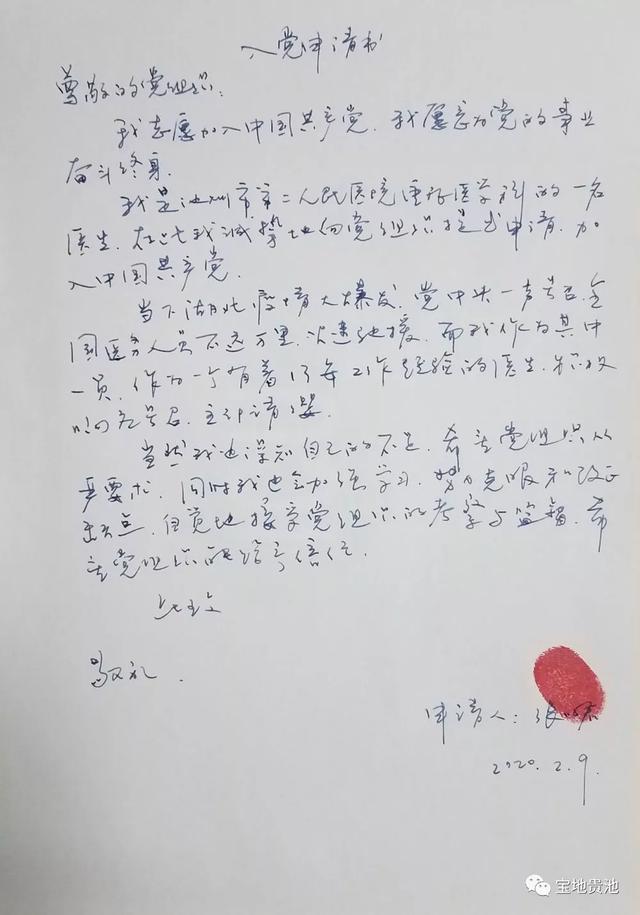 入党申请书
尊敬的党组织：
我志愿加入中国共产党，我愿意为党的事业
奋斗终身。
我是池州市第二人民医院重症医学科的一名
医生，在此我诚挚地向党组织提出申请，加
入中国共产党。
当下湖北疫情大爆发，党中央一声号召，全
国医务人员不远万里，火速驰援，而我作为其中
一员，作为一个有着13年工作经验的医生，积极
响应号召，主动请缨。
当然我也深知自己的不足，希望党组织从
严要求，同时我也会加强学习，努力克服和改正
缺点，自觉地接受党组织的考察与监督，希
望党组织能给予信任。
此致
敬礼。
申请人：张
2020.2.9.
宝地贵池